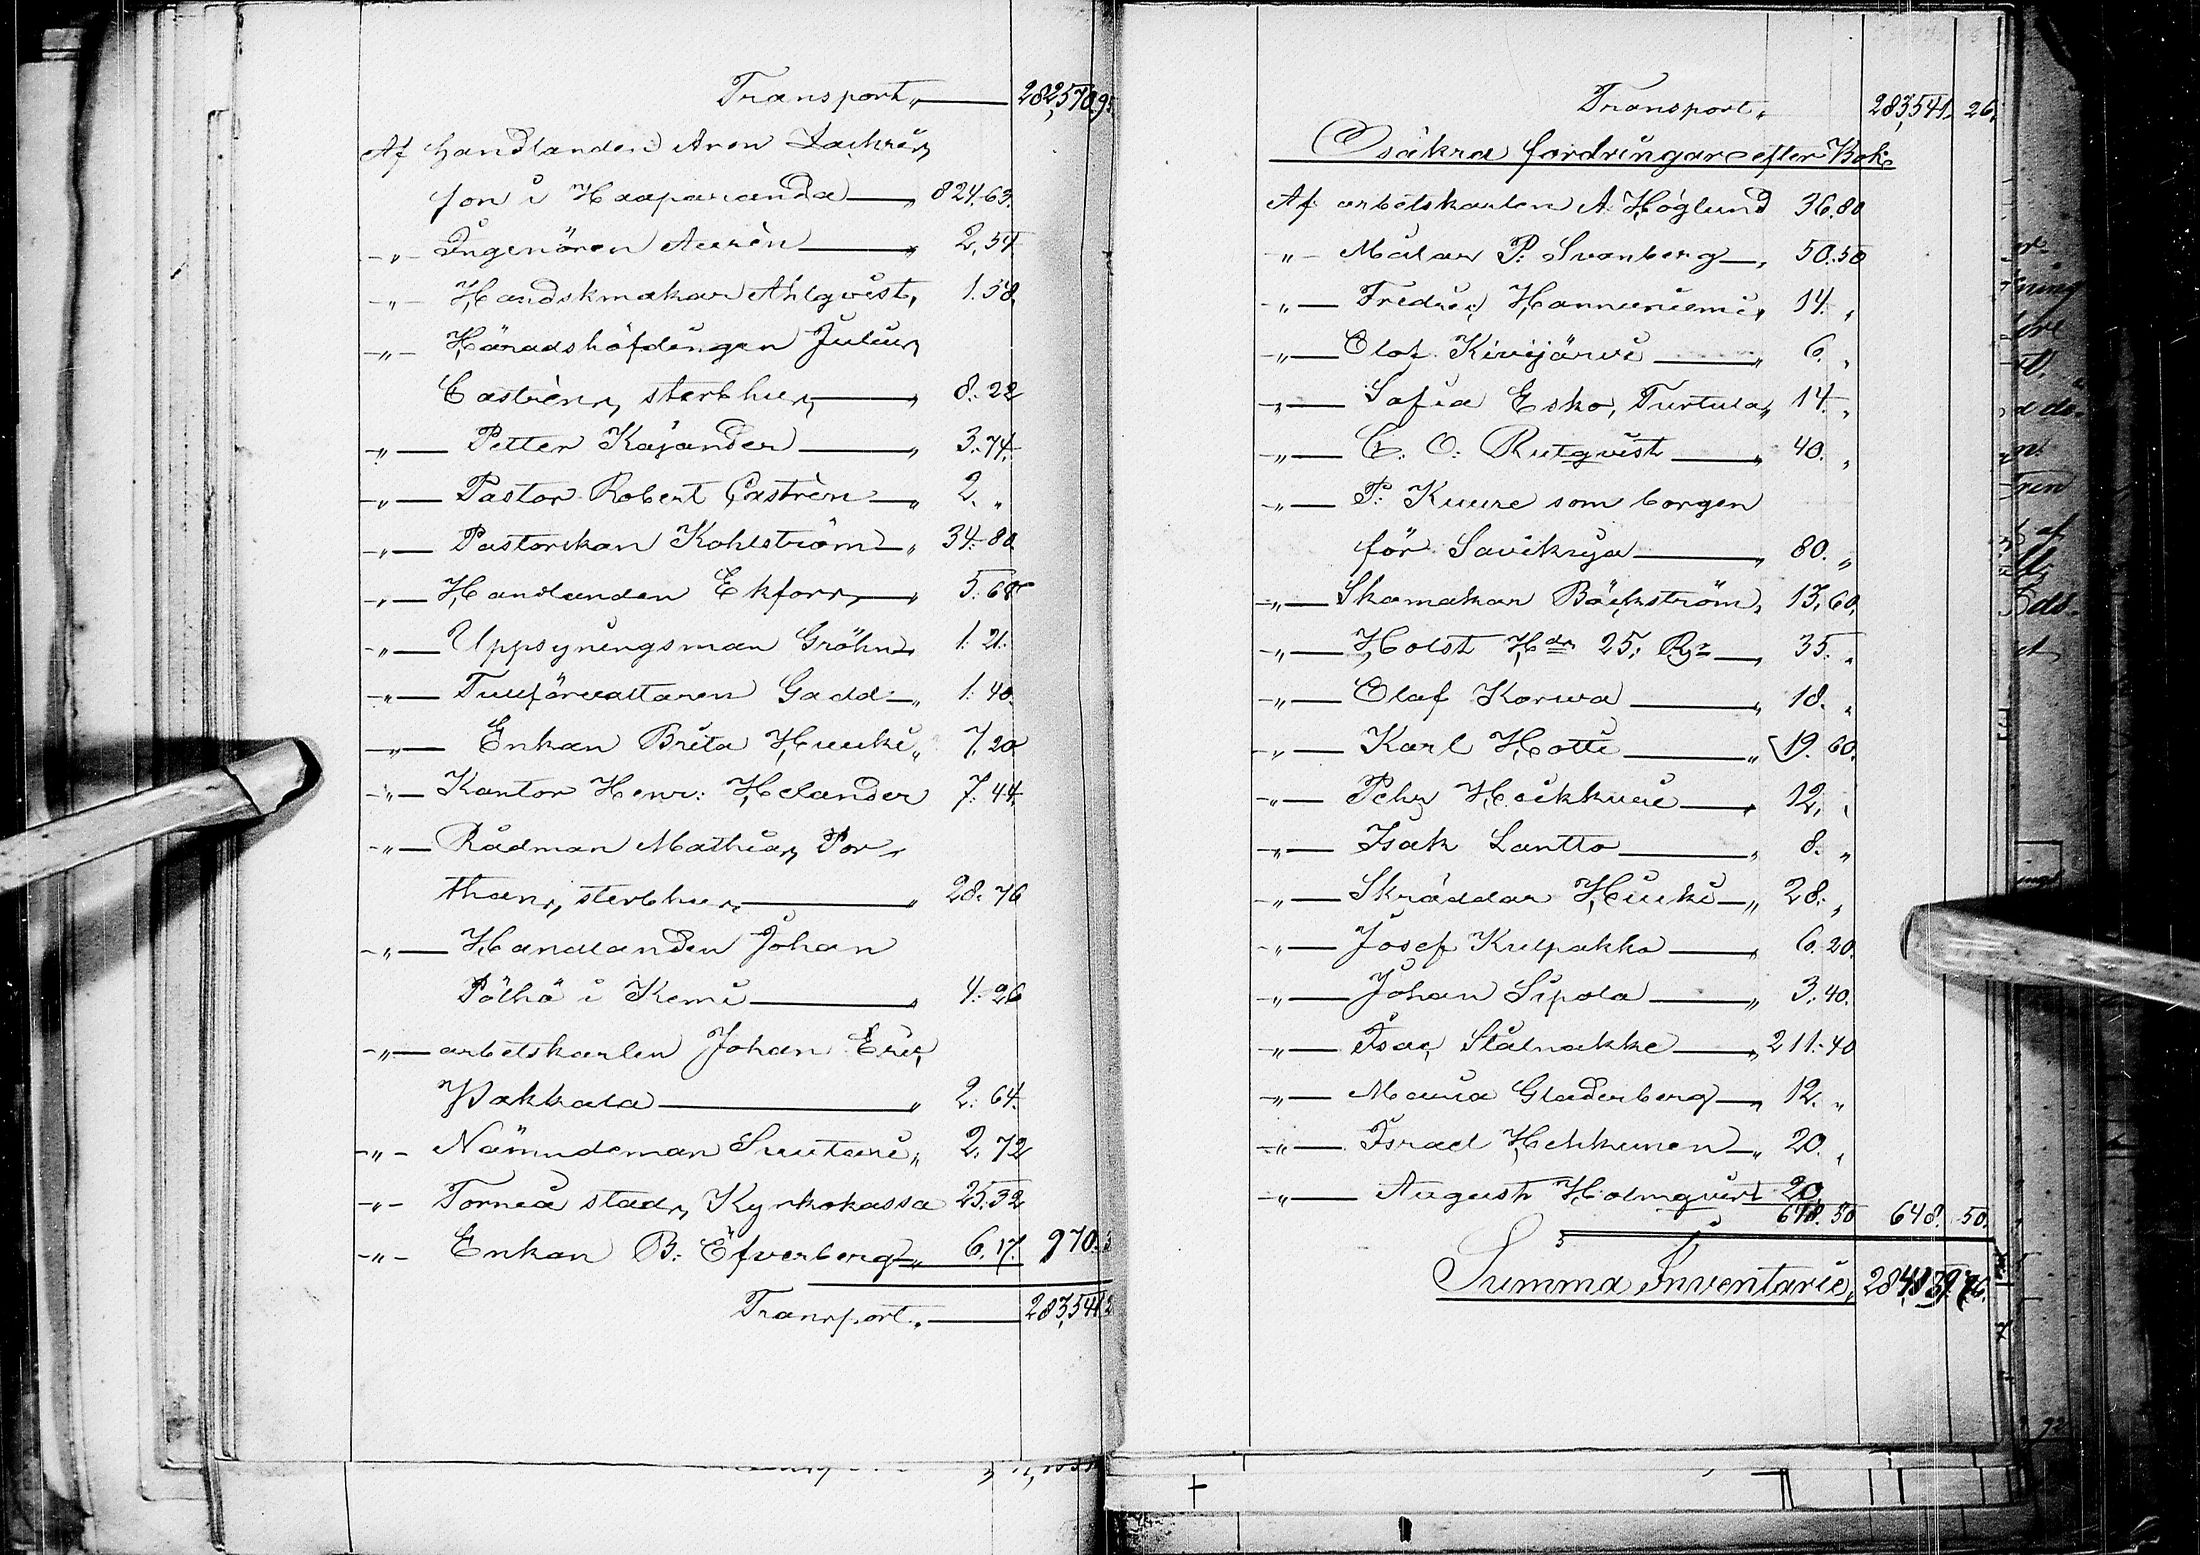 Transport " 282,570.95
Af handlanden Aron Zachris
son i Haaparanda " 824.63.
-"- Ingeniören Aurén " 2.54.
-"- Handskmakar Ahlqvist, 1.58.
-"- Häradshöfdingen Julius
Castréns, sterbhus " 8.22
-"- Petter Kajander " 3.74.
-"- Pastor Robert Castrén " 2. "
-"- Pastorskan Kohlström " 34.80.
-"- Handlanden Ekfors " 5.68
-"- Uppsyningsman Gröhn " 1.21.
-"- Tullförvaltaren Gadd " 1.40.
-"- Enkan Brita Huuki " 7.20
-"- Kantor Henr: Helander 7.44.
-"- Rådman Mathias Por-
thans, sterbhus " 28.76
-"- Handlanden Johan
Pölhö i Kemi " 4.26
-"- arbetskarlen Johan Eric
Wakkala " 2.64.
-"- Nämndeman Suutari " 2.72
-"- Torneå stads Kyrkokassa 25.32
-"- Enkan B: Öfverberg " 6.17. 970.
Transport " 283,541.2
Transport " 283,541. 26.
Osäkra fordringar efter Bok.
Af arbetskarlen A. Höglund 36.80
"- Målar P: Svanberg " 50.50
-"- Fredric Hannuniemi " 14. "
-"- Olof Kivijärvi " 6. "
-"- Safia Esko, Turtula " 14. "
-"- C. O. Rutqvist " 40. "
-"- P: Kuure som borgen
för Saviksya " 80. "
-"- Skomakar Bäckström " 13.60.
-"- Holst 25. 35. "
-"- Olof Korwa " 18. "
-"- Karl Hotti " 19.60.
-"- Pehr Heikkuri " 12. "
-"- Isak Lantto " 8. "
-"- Skräddar Huuki " 28. "
-"- Josef Kulpakko " 6.20.
-"- Johan Sipola " 3.40.
-"- Isac Stålnakke " 211.40
-"- Maria Gladerberg " 12. "
-"- Israel Hehkunen " 20. "
-"- August Holmqvist 20.
648.50 648. 50.
Summa Inventarie, 284,189.76.